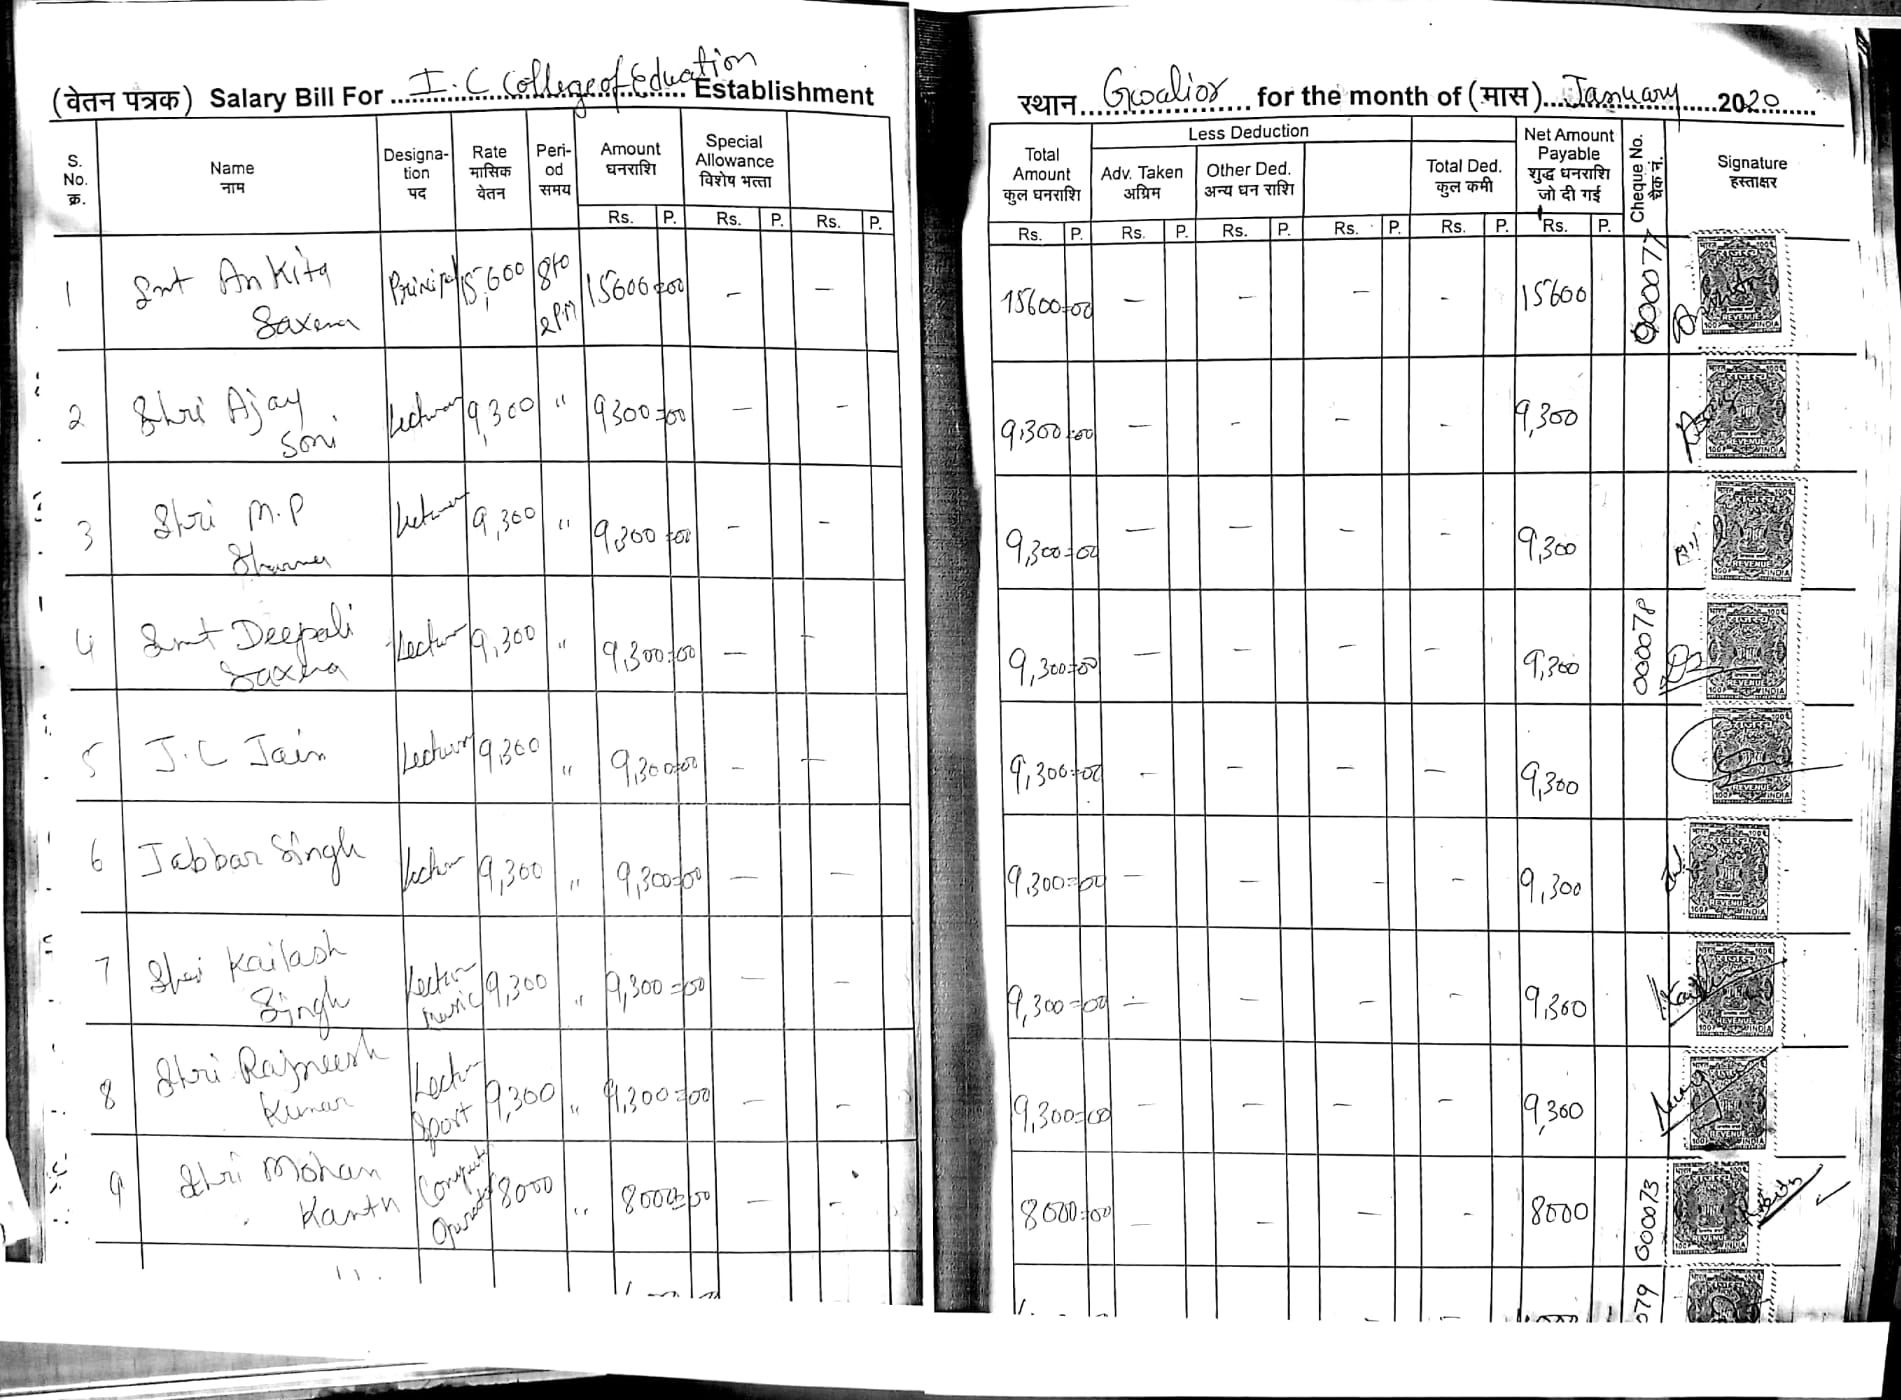 (वेतन पत्रक) Salary Bill For I.C College of Eduation Establishment
स्थान Gwalior for the month of (मास) January 2020
S. No. क्र.
Name नाम
Designa-tion पद
Rate मासिक वेतन
Peri-od समय
Amount धनराशि
Special Allowance विशेष भत्ता
Rs. P. Rs. P. Rs. P.
Total Amount कुल धनराशि
Less Deduction
Adv. Taken अग्रिम
Other Ded. अन्य धन राशि
Total Ded. कुल कमी
Net Amount Payable शुद्ध धनराशि जो दी गई
Cheque No. चैक नं.
Signature हस्ताक्षर
Rs. P. Rs. P. Rs. P. Rs. P. Rs. P. Rs. P.
1 Smt Ankita Saxena Prinipal 15,600 8to 2PM 15600=00 – – 15600=00 – – – – 15600 000077
2 Shri Ajay Soni Lecturer 9,300 " 9300=00 – – 9,300=00 – – – – 9,300
3 Shri M.P Sharma Lecturer 9,300 " 9,300=00 – – 9,300=00 – – – – 9,300
4 Smt Deepali Saxena Lecturer 9,300 " 9,300=00 – – 9,300=00 – – – – 9,300 000078
5 J.C Jain Lecturer 9,300 " 9,300=00 – – 9,300=00 – – – – 9,300
6 Jabbar Singh Lecturer 9,300 " 9,300=00 – – 9,300=00 – – – – 9,300
7 Shri Kailash Singh Lectur music 9,300 " 9,300=00 – – 9,300=00 – – – – 9,300
8 Shri Rajneesh Kumar Lectur Sport 9,300 " 9,300=00 – – 9,300=00 – – – – 9,300
9 Shri Mohan Kanth Computer Operator 8000 " 8000=00 – – 8000=00 – – – – 8000 000073
079
REVENUE
INDIA